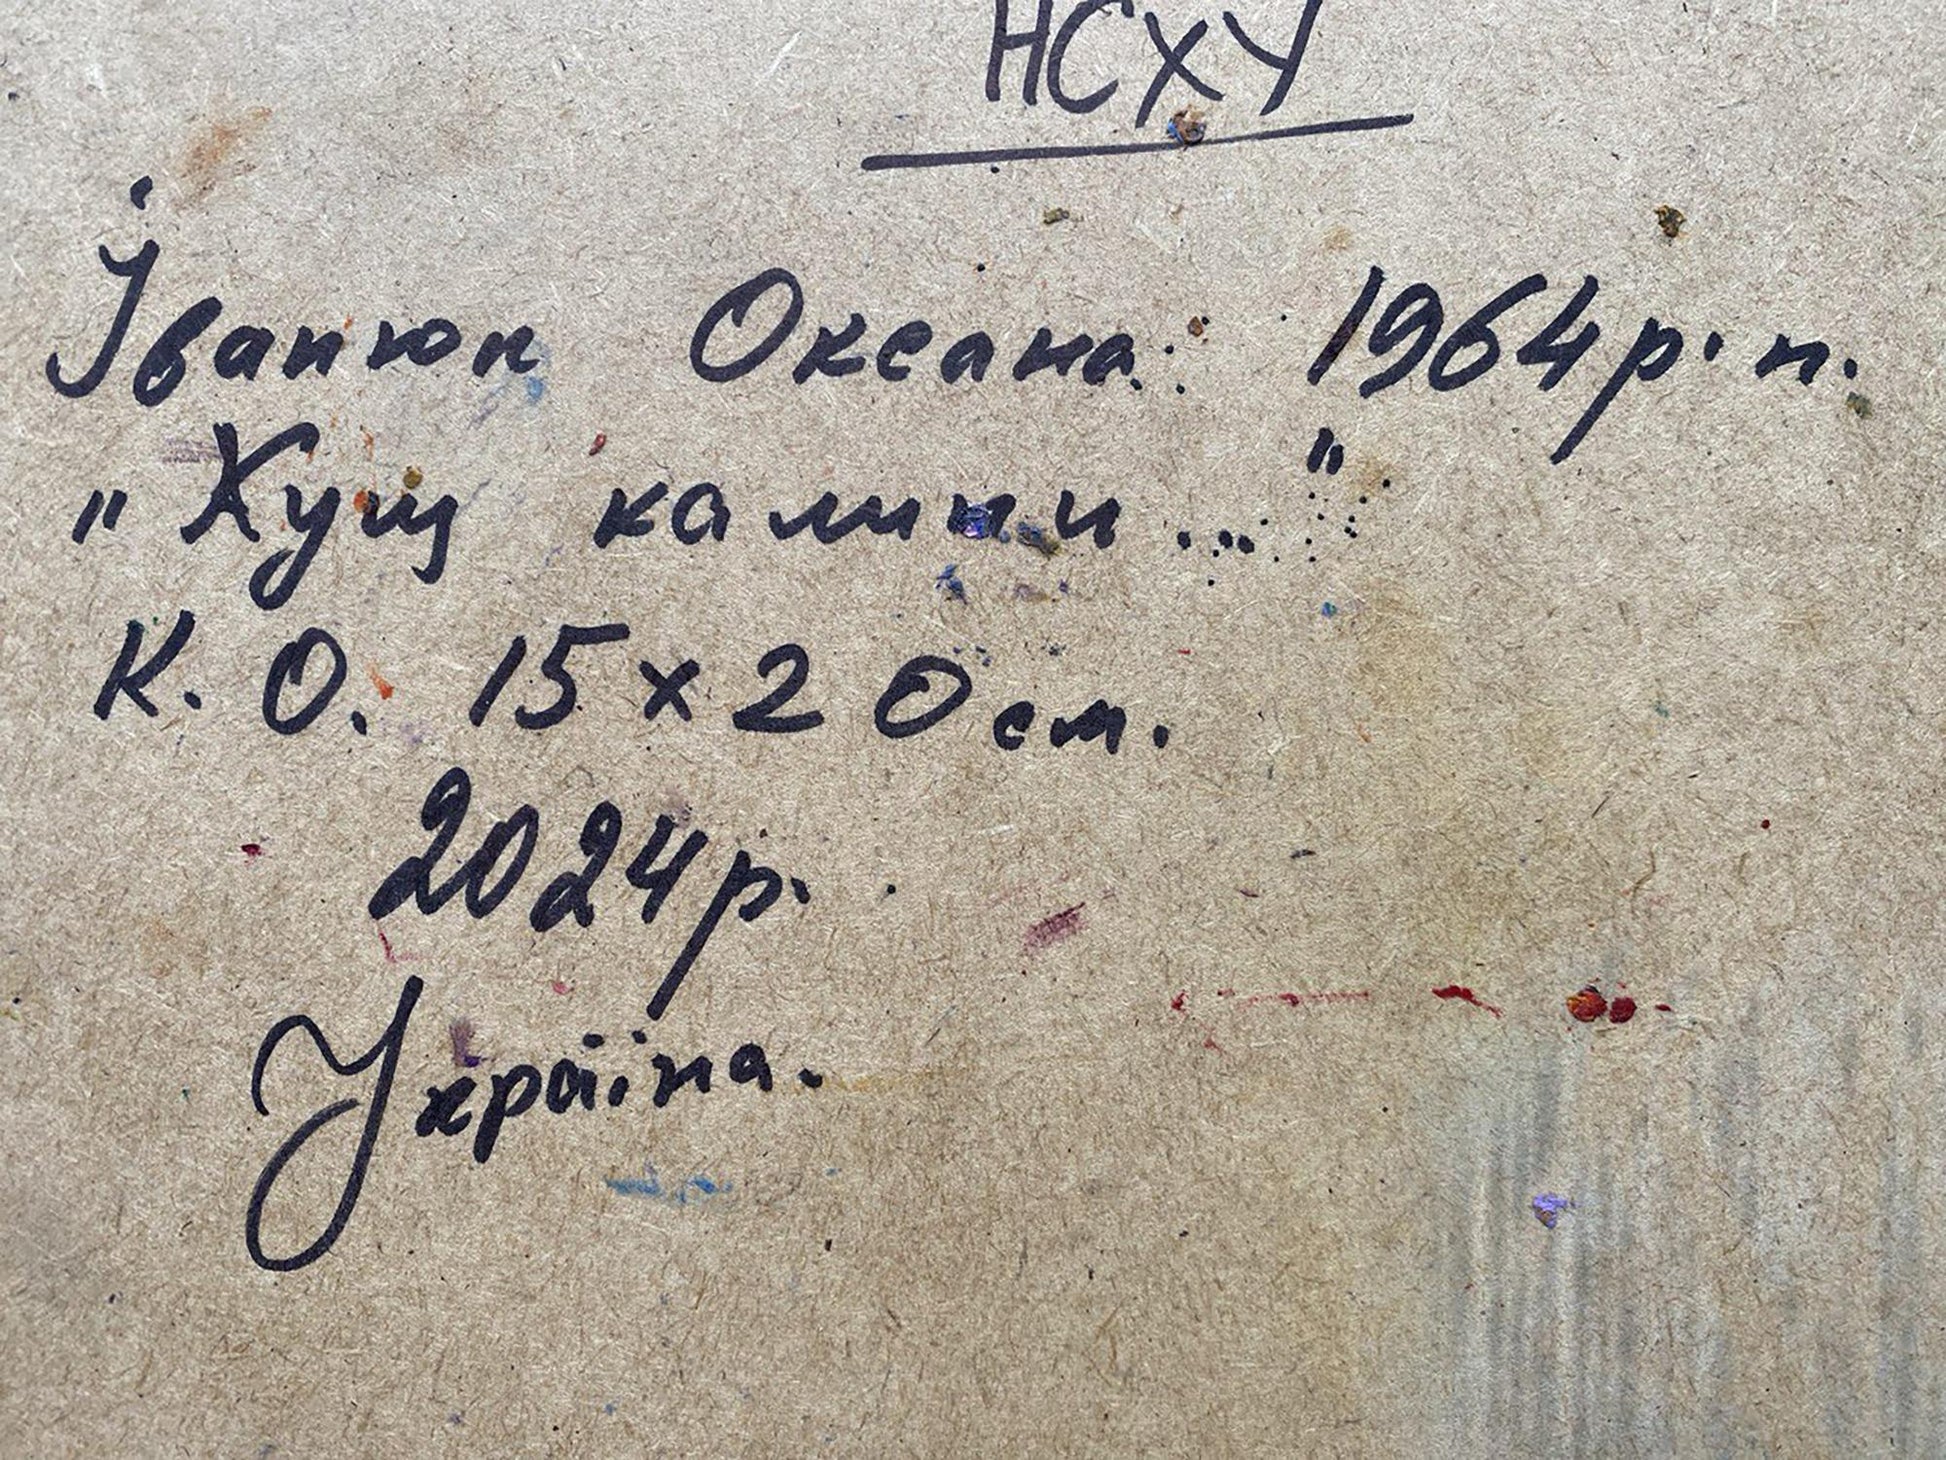 НСХУ
Іванюк Оксана 1964 р. н.
"Кущ калини..."
К. О. 15 х 20 см.
2024 р.
Україна.